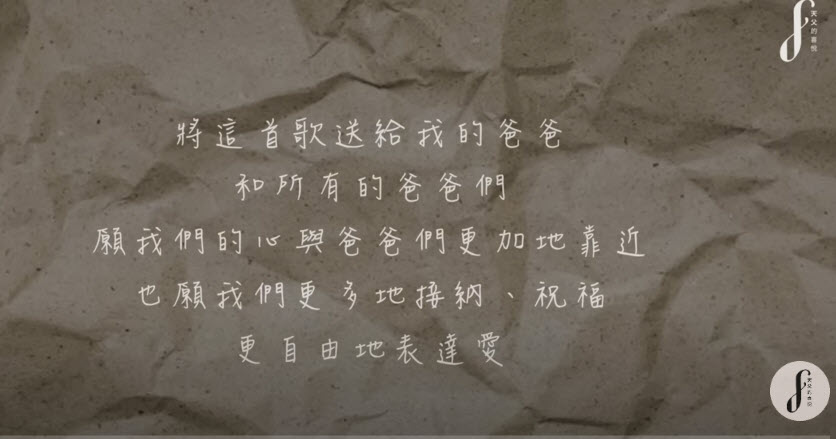 天父的喜悅
將這首歌送給我的爸爸
和所有的爸爸們
願我們的心與爸爸們更加地靠近
也願我們更多地接納、祝福
更自由地表達愛
天父的喜悅